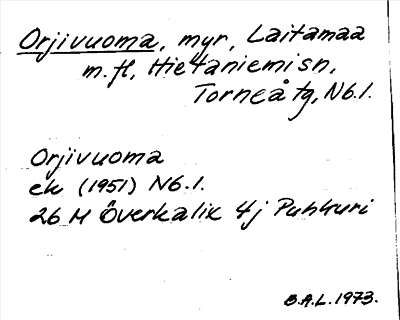 Orjivuoma, myr, Laitamaa
m.fl, Hietaniemi sn,
Torneå tg, N6.1.
Orjivuoma
ek (1951) N6.1.
26 M Överkalix 4j Puhkuri
B.A.L. 1973.